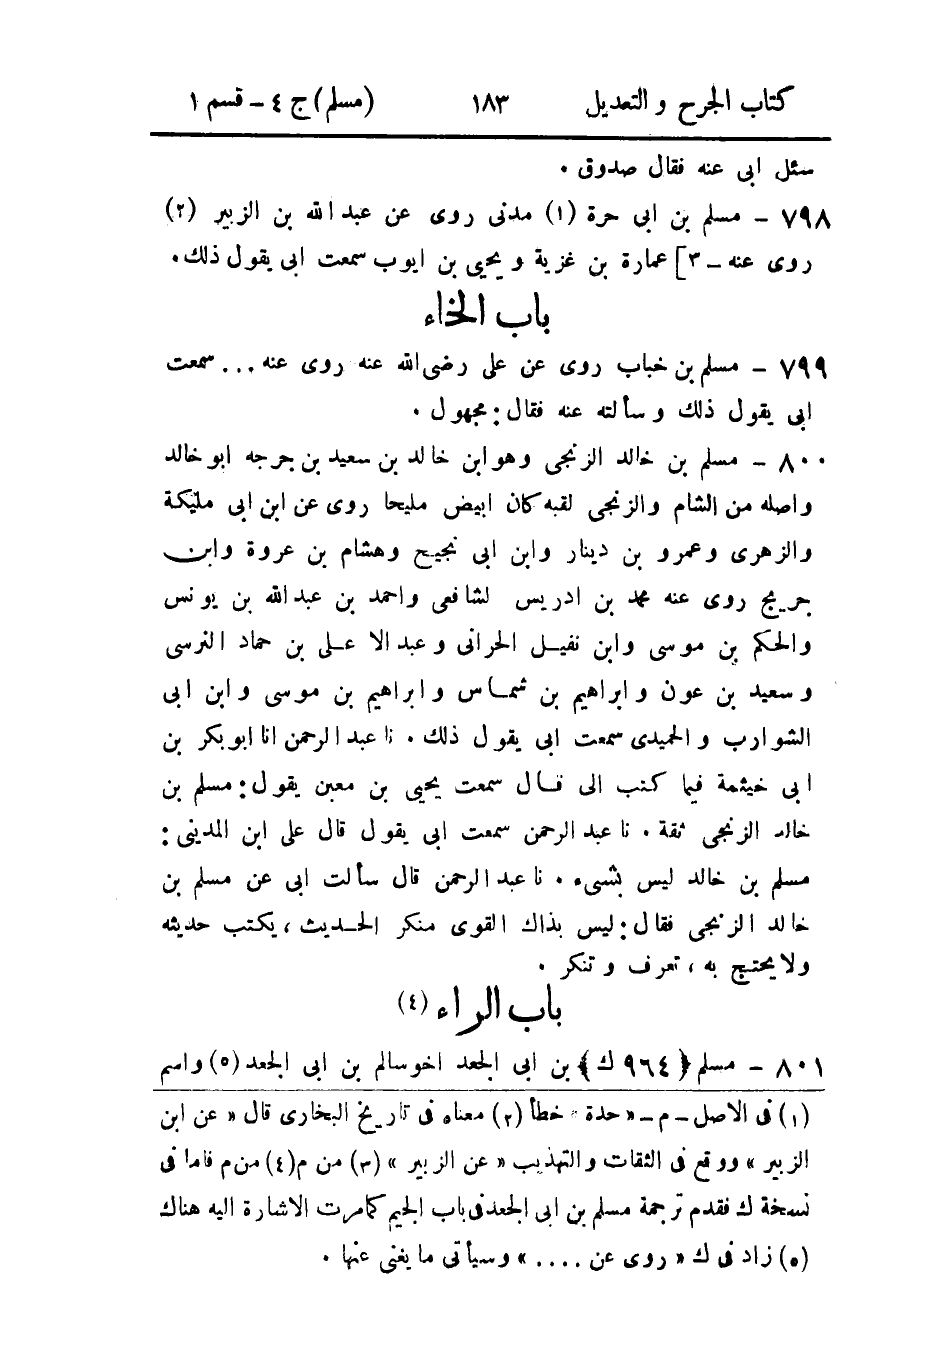 كتاب الجرح والتعديل ١٨٣ (مسلم) ج ٤ – قسم ١
سئل ابى عنه فقال صدوق .
٧٩٨ – مسلم بن ابى حرة (١) مدنى روى عن عبد الله بن الزبير (٢)
روى عنه – ٣] عمارة بن غزية و يحيى بن ايوب سمعت ابى يقول ذلك .
باب الخاء
٧٩٩ – مسلم بن خباب روى عن على رضى الله عنه روى عنه ... سمعت
ابى يقول ذلك وسألته عنه فقال : مجهول .
٨٠٠ – مسلم بن خالد الزنجى وهو ابن خالد بن سعيد بن جرجه ابو خالد
واصله من الشام والزنجى لقبه كان ابيض مليحا روى عن ابن ابى مليكة
والزهرى وعمرو بن دينار وابن ابى نجيح وهشام بن عروة وابن
جريج روى عنه محمد بن ادريس لشافعى واحمد بن عبد الله بن يونس
والحكم بن موسى وابن نفيل الحرانى وعبد الاعلى بن حماد النرسى
وسعيد بن عون وابراهيم بن شماس وابراهيم بن موسى وابن ابى
الشوارب والحميدى سمعت ابى يقول ذلك . نا عبد الرحمن انا ابو بكر بن
ابى خيثمة فيما كتب الى قال سمعت يحيى بن معين يقول : مسلم بن
خالد الزنجى ثقة . نا عبد الرحمن سمعت ابى يقول قال على ابن المدينى :
مسلم بن خالد ليس بشىء . نا عبد الرحمن قال سألت ابى عن مسلم بن
خالد الزنجى فقال : ليس بذاك القوى منكر الحديث ، يكتب حديثه
ولا يحتج به ، تعرف وتنكر .
باب الراء (٤)
٨٠١ – مسلم {٩٦٤ ك} بن ابى الجعد اخو سالم بن ابى الجعد (٥) واسم
(١) فى الاصل – م – « حدة » خطأ (٢) معناه فى تاريخ البخارى قال « عن ابن
الزبير » ووقع فى الثقات والتهذيب « عن الزبير » (٣) من م (٤) من م فاما فى
نسخة ك فقدم ترجمة مسلم بن ابى الجعد فى باب الجيم كما مرت الاشارة اليه هناك
(٥) زاد فى ك « روى عن .... » وسيأتى ما يغنى عنها .